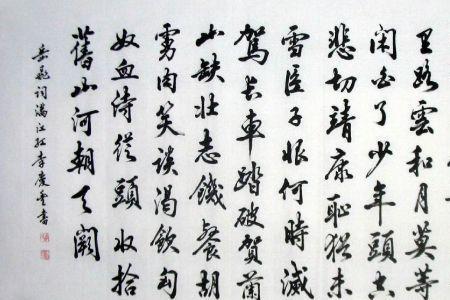 里路雲和月莫等
闲白了少年頭空
悲切靖康耻猶未
雪臣子恨何時滅
駕長車踏破賀蘭
山缺壯志饑餐胡
虜肉笑談渴飲匈
奴血待從頭收拾
舊山河朝天闕
岳飛詞滿江紅李慶書